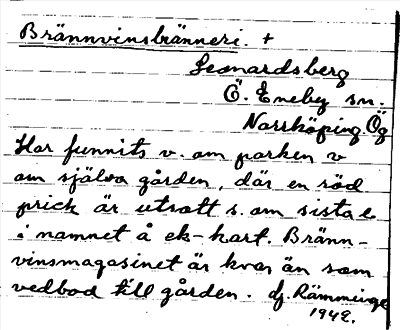 Brännvinsbränneri. +
Leonardsberg
Ö. Eneby sn.
Norrköping Ög
Har funnits v. om parken v
om själva gården, där en röd
prick är utsatt s. om sista e
i namnet å ek-kart. Bränn-
vinsmagasinet är kvar än som
vedbod till gården. dj. Rämminge
1942.